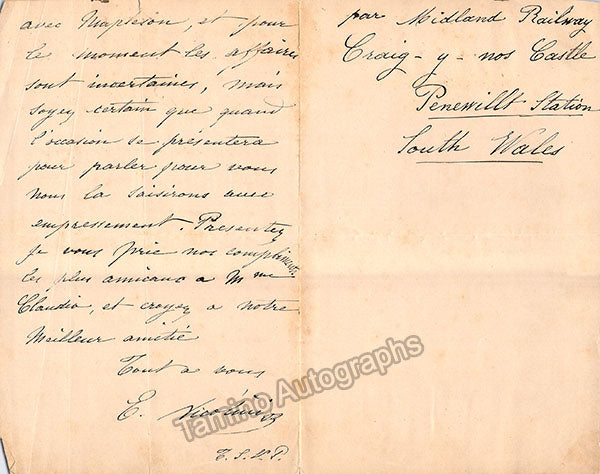 avec Mapleson, et pour
le moment les affaires
sont incertaines, mais
soyez certain que quand
l'occasion se présentera
pour parler pour vous
nous la saisirons avec
empressement. Presentez
je vous prie nos compliments
les plus amicaux a Mme
Claudia, et croyez a notre
Meilleur amitié
Tout a vous
E. Nicolini
T.S.V.P.
par Midland Railway
Craig-y-nos Castle
Penewillt Station
South Wales
Tamino Autographs